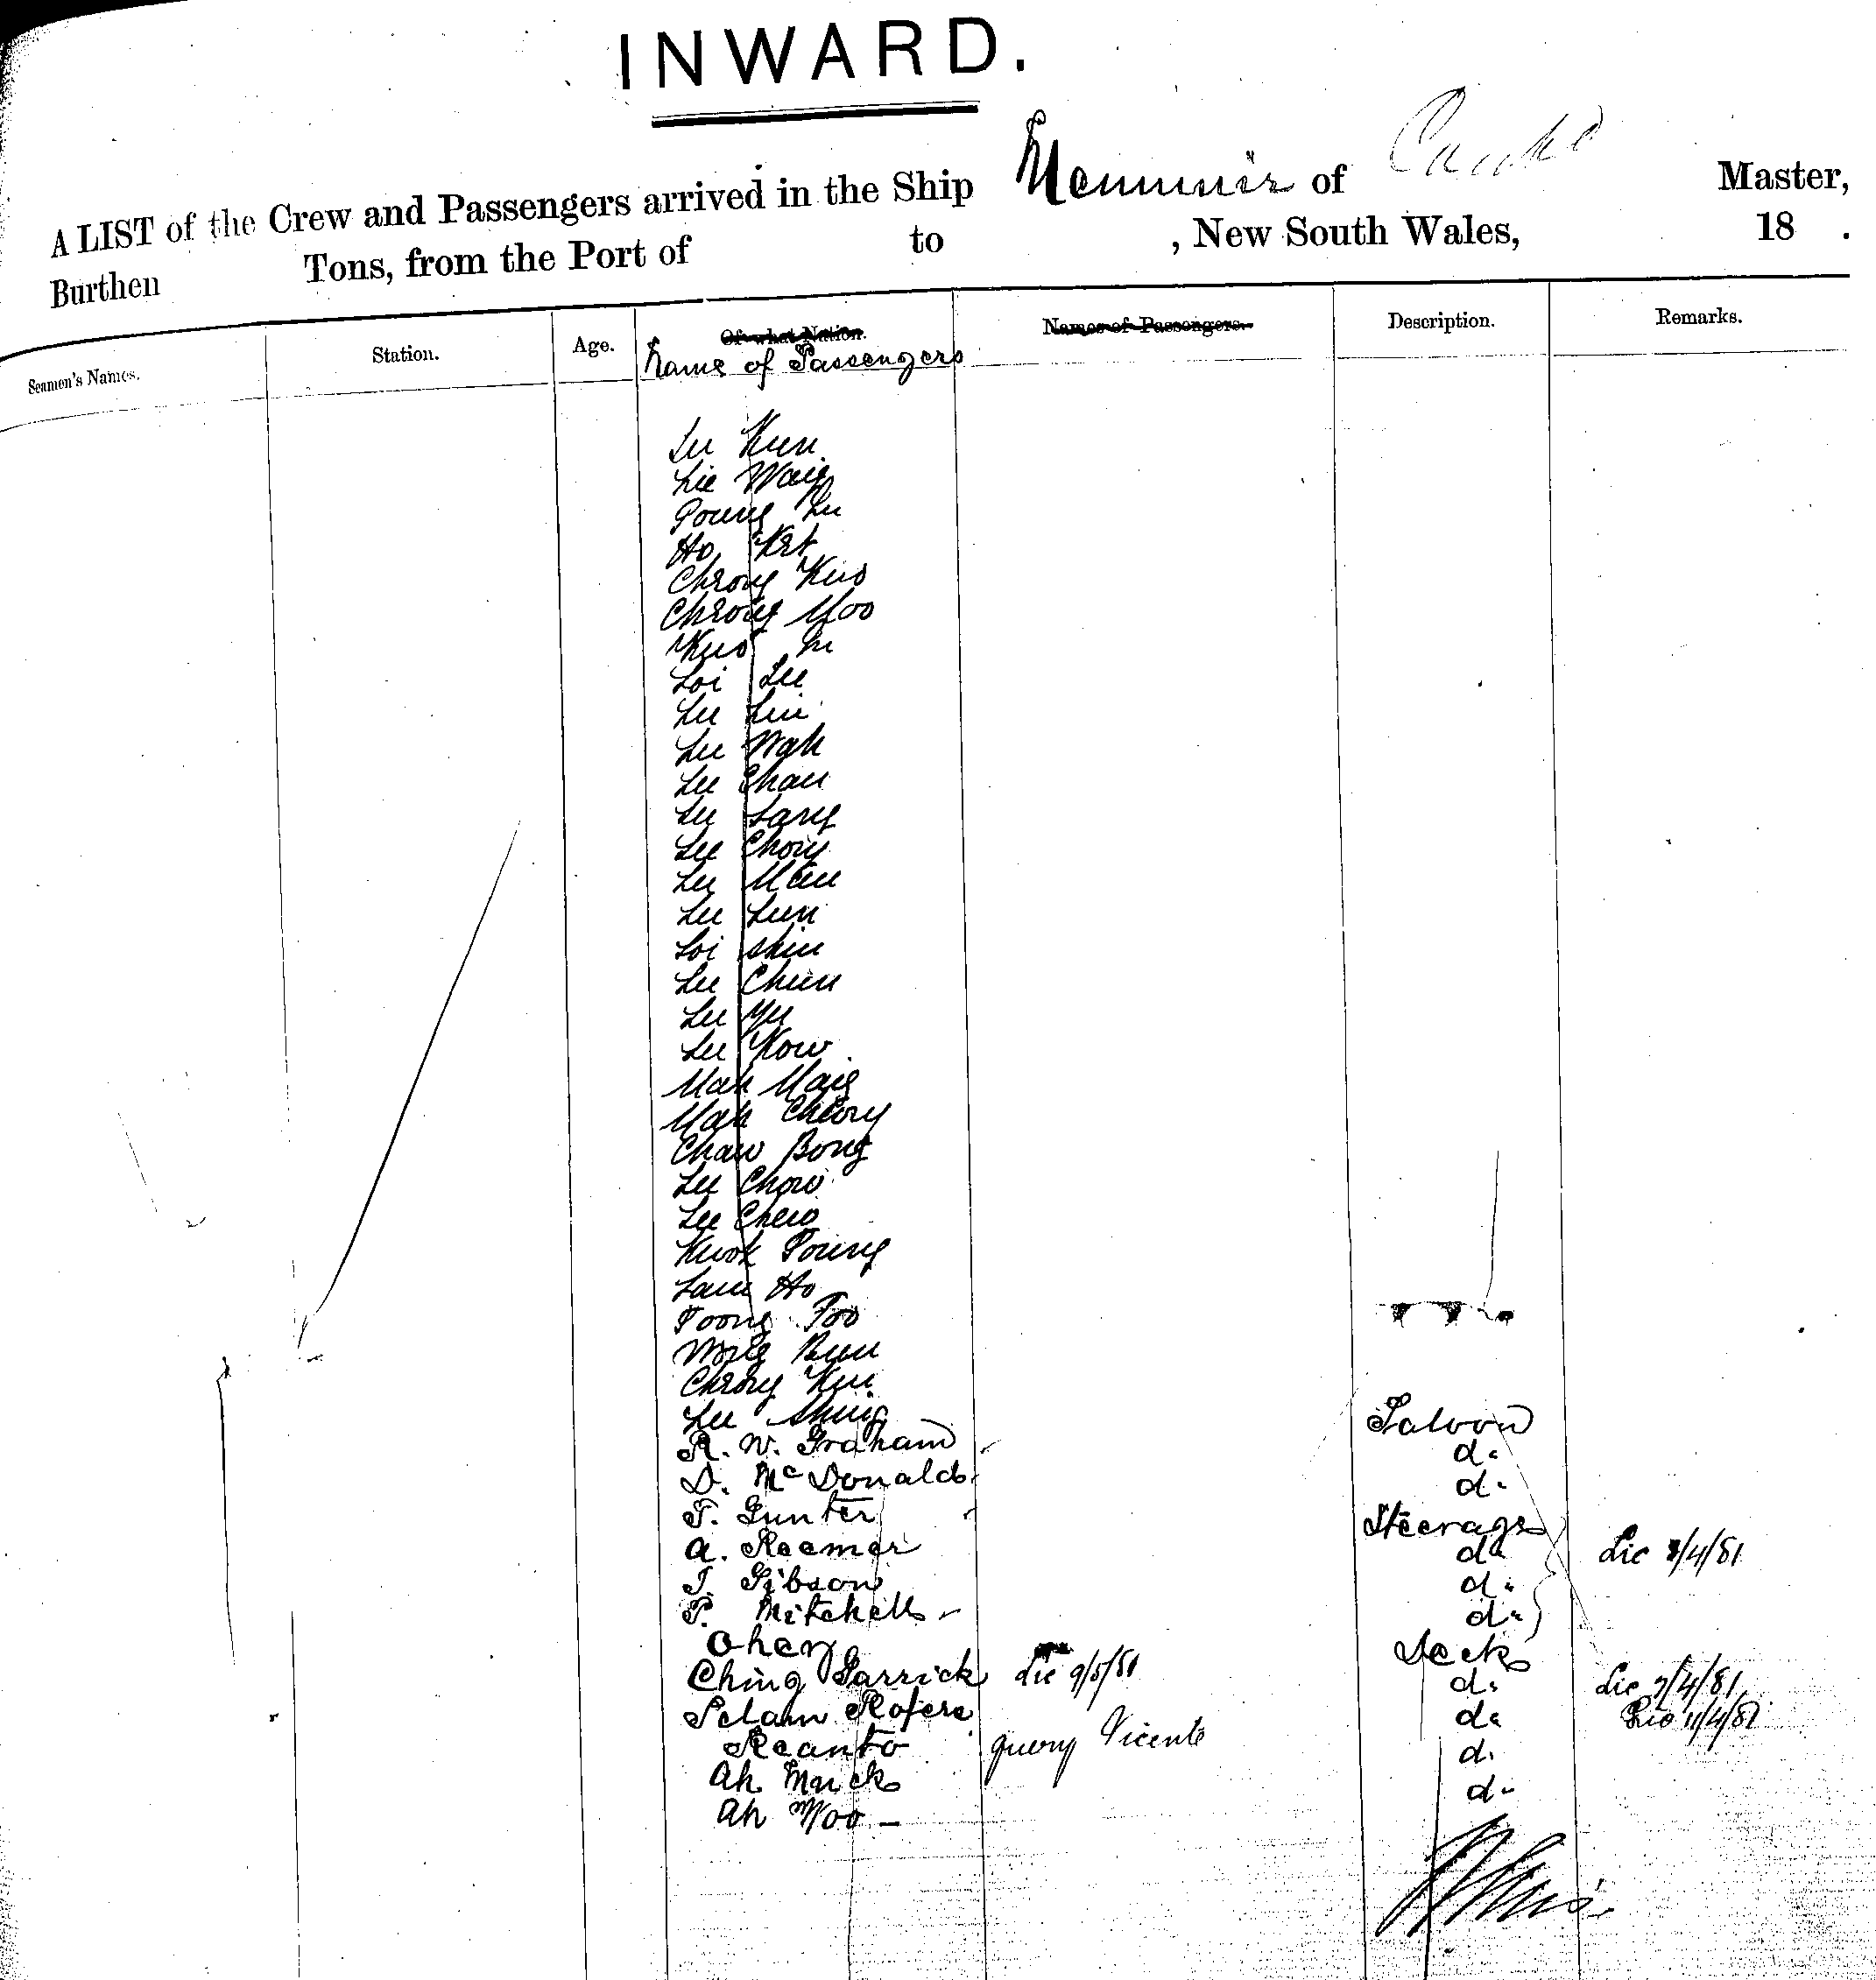 INWARD.
A LIST of the Crew and Passengers arrived in the Ship of Master,
Burthen Tons, from the Port of to , New South Wales, 18 .
Seamen's Names. Station. Age. Of what Nation. Names of Passengers. Description. Remarks.
Name of Passengers
Lee Kun
Lie
Poung Lee
Ho
Chrong Kuo
Chrong Moo
Kuo
Loi Lee
Lee Lin
Lee Wah
Lee Chan
Lee Lang
Lee Chong
Lee Man
Lee Lun
Loi Shin
Lee Chun
Lee Yu
Lee Kow
Mah Mang
Mah Cheong
Chaw Bong
Lee Chow
Lee Chew
Kwok Poung
Lam Ho
Toong Foo
Wong Bun
Chrong Kui
Lee Shing
R. W. Graham Saloon
D. McDonald do
T. Gunter do
A. Reemer Steerage
J. Gibson do Lic /4/81
P. Mitchell do
do
Ohen Deck
Ching Garrick Lic 9/5/81 do Lic 7/4/81
Selam Rofere do Lic 11/4/81
Reanto query Vicente do
Ah Muck do
Ah Moo